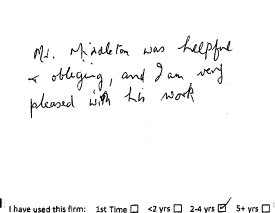 Mr. Middleton was helpful
& obliging, and I am very
pleased with his work
I have used this firm: 1st Time ☐ <2 yrs ☐ 2-4 yrs ☑ 5+ yrs ☐